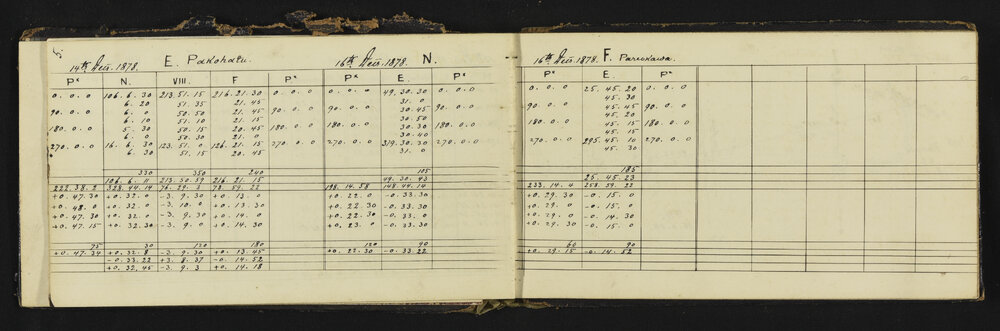 5.
14th Dec. 1878. E. Pakohatu. 16th Dec. 1878. N. 16th Dec. 1878. F. Pariokawa.
Px N. VIII. F Px Px E. Px Px E. Px
0. 0. 0 106. 6. 30 213. 51. 15 216. 21. 30 0. 0. 0 0. 0. 0 49. 30. 30 0. 0. 0 0. 0. 0 25. 45. 20 0. 0. 0
6. 20 51. 35 21. 45 31. 0 45. 30
90. 0. 0 6. 0 50. 50 21. 45 90. 0. 0 90. 0. 0 30. 45 90. 0. 0 90. 0. 0 45. 45 90. 0. 0
6. 10 51. 10 21. 15 30. 50 45. 20
180. 0. 0 5. 30 50. 15 20. 45 180. 0. 0 180. 0. 0 30. 30 180. 0. 0 180. 0. 0 45. 15 180. 0. 0
6. 0 50. 30 21. 0 30. 40 45. 15
270. 0. 0 16. 6. 30 123. 51. 0 126. 21. 15 270. 0. 0 270. 0. 0 319. 30. 30 270. 0. 0 270. 0. 0 295. 45. 10 270. 0. 0
6. 30 51. 15 20. 45 31. 0 45. 30
330 350 240 105 185
106. 6. 11 213. 50. 59 216. 21. 15 49. 30. 43 25. 45. 23
222. 38. 2 328. 44. 14 76. 29. 3 78. 59. 22 198. 14. 58 148. 44. 14 233. 14. 4 258. 59. 22
+0. 47. 30 +0. 32. 0 -3. 9. 30 +0. 13. +0. 22. 0 -0. 33. 30 +0. 29. 30 -0. 15. 0
+0. 48. 0 +0. 32. 0 -3. 10. 0 +0. 13. 30 +0. 22. 30 -0. 33. 0 +0. 29. 0 -0. 15. 0
+0. 47. 30 +0. 32. 0 -3. 9. 30 +0. 14. 0 +0. 22. 30 -0. 33. 0 +0. 29. 0 -0. 14. 30
+0. 47. 15 +0. 32. 30 -3. 9. 0 +0. 14. 30 +0. 23. 0 -0. 33. 30 +0. 29. 30 -0. 15. 0
75 30 120 180 120 90 60 90
+0. 47. 34 +0. 32. 8 -3. 9. 30 +0. 13. 45 +0. 22. 30 -0. 33. 22 +0. 29. 15 -0. 14. 52
-0. 33. 22 +3. 8. 37 -0. 14. 52
+0. 32. 45 -3. 9. 3 +0. 14. 18